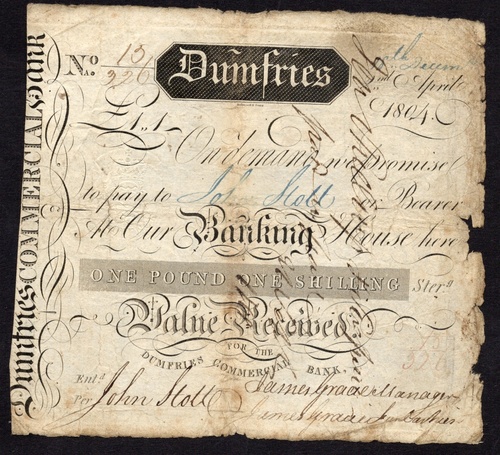 Dumfries COMMERCIAL BANK
No 131
A. 226
Dumfries
2nd April
1804.
£1,,1,,
On demand we Promise
to pay to Jos Stott or Bearer
At Our Banking House here
ONE POUND ONE SHILLING Sterg
Value Received
FOR THE
DUMFRIES COMMERCIAL BANK,
Entd
Per John Stott
James Gracie Manager
James Gracie